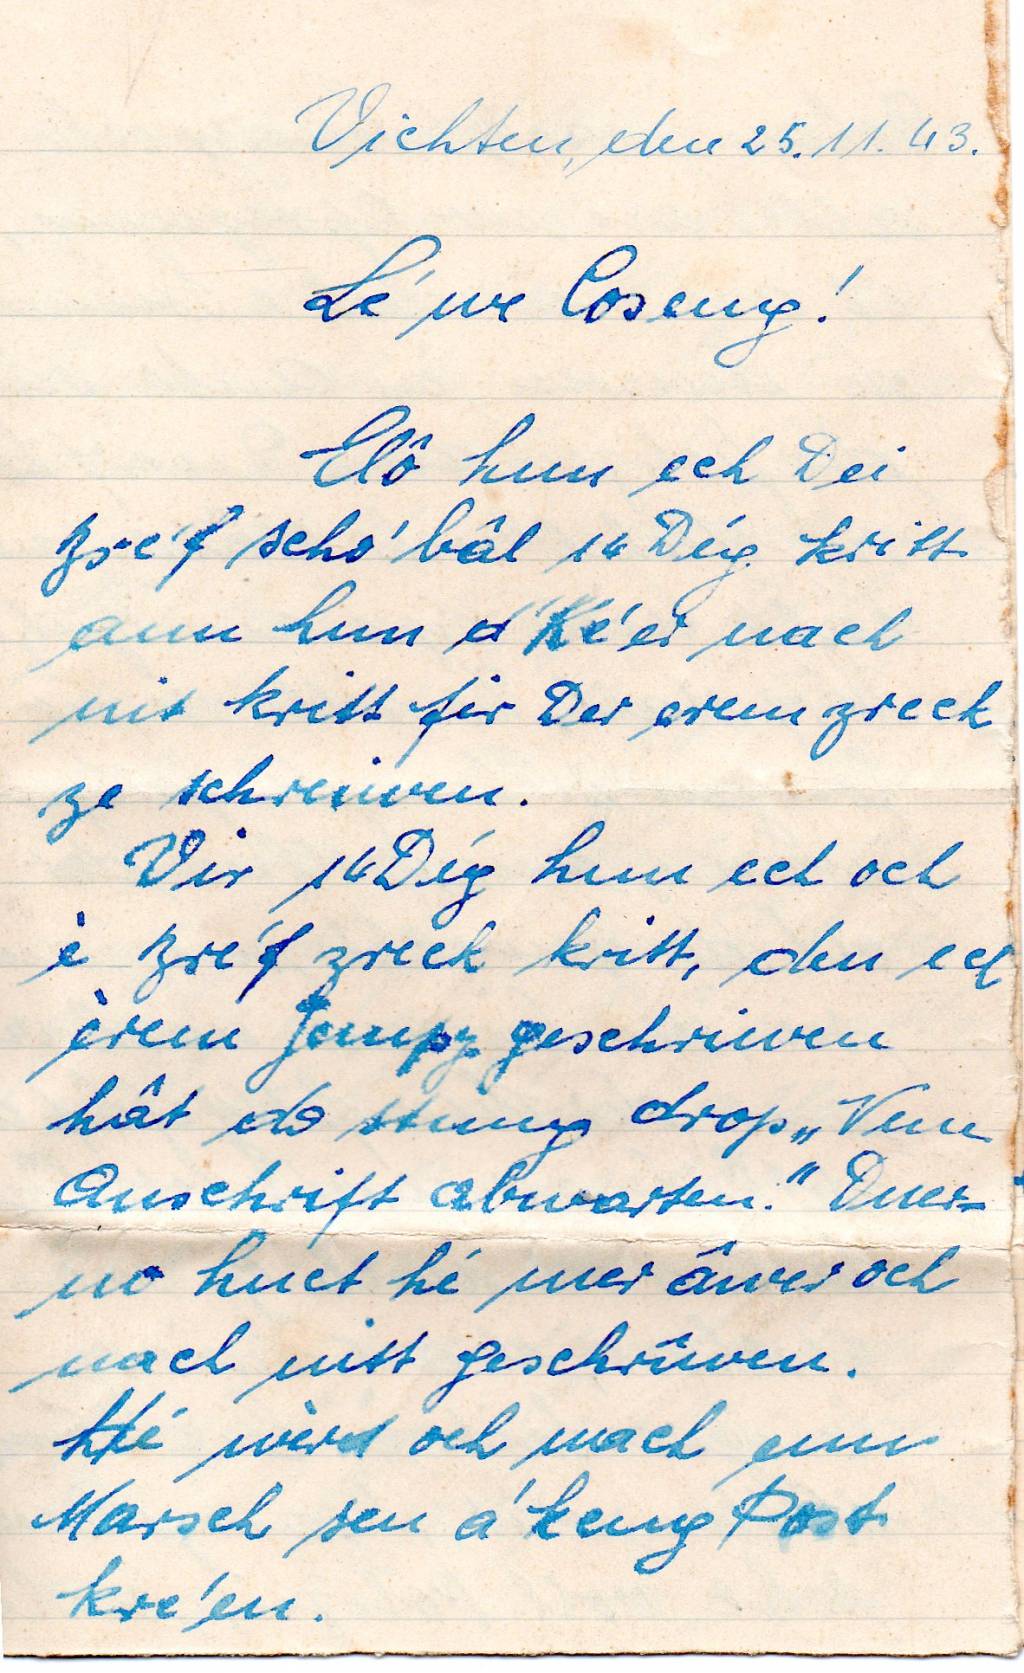 Vichten, den 25.11.43.
Lé'we Coseng!
Elô hun ech Dei
Bre'f scho' bâl 14 Dég kritt
ann hun d'Ke'er nach
nit kritt fir Der erem zreck
ze schreiwen.
Vir 14 Dég hun ech och
è Bre'f zreck kritt, den ech
èrem Jempy geschriwen
hât do stung drop „Neue
Anschrift abwarten." Duer-
no huet hé mer âwer och
nach nitt geschriwen.
Hé wèrd och nach um
Marsch sen a' keng Post
kre'en.